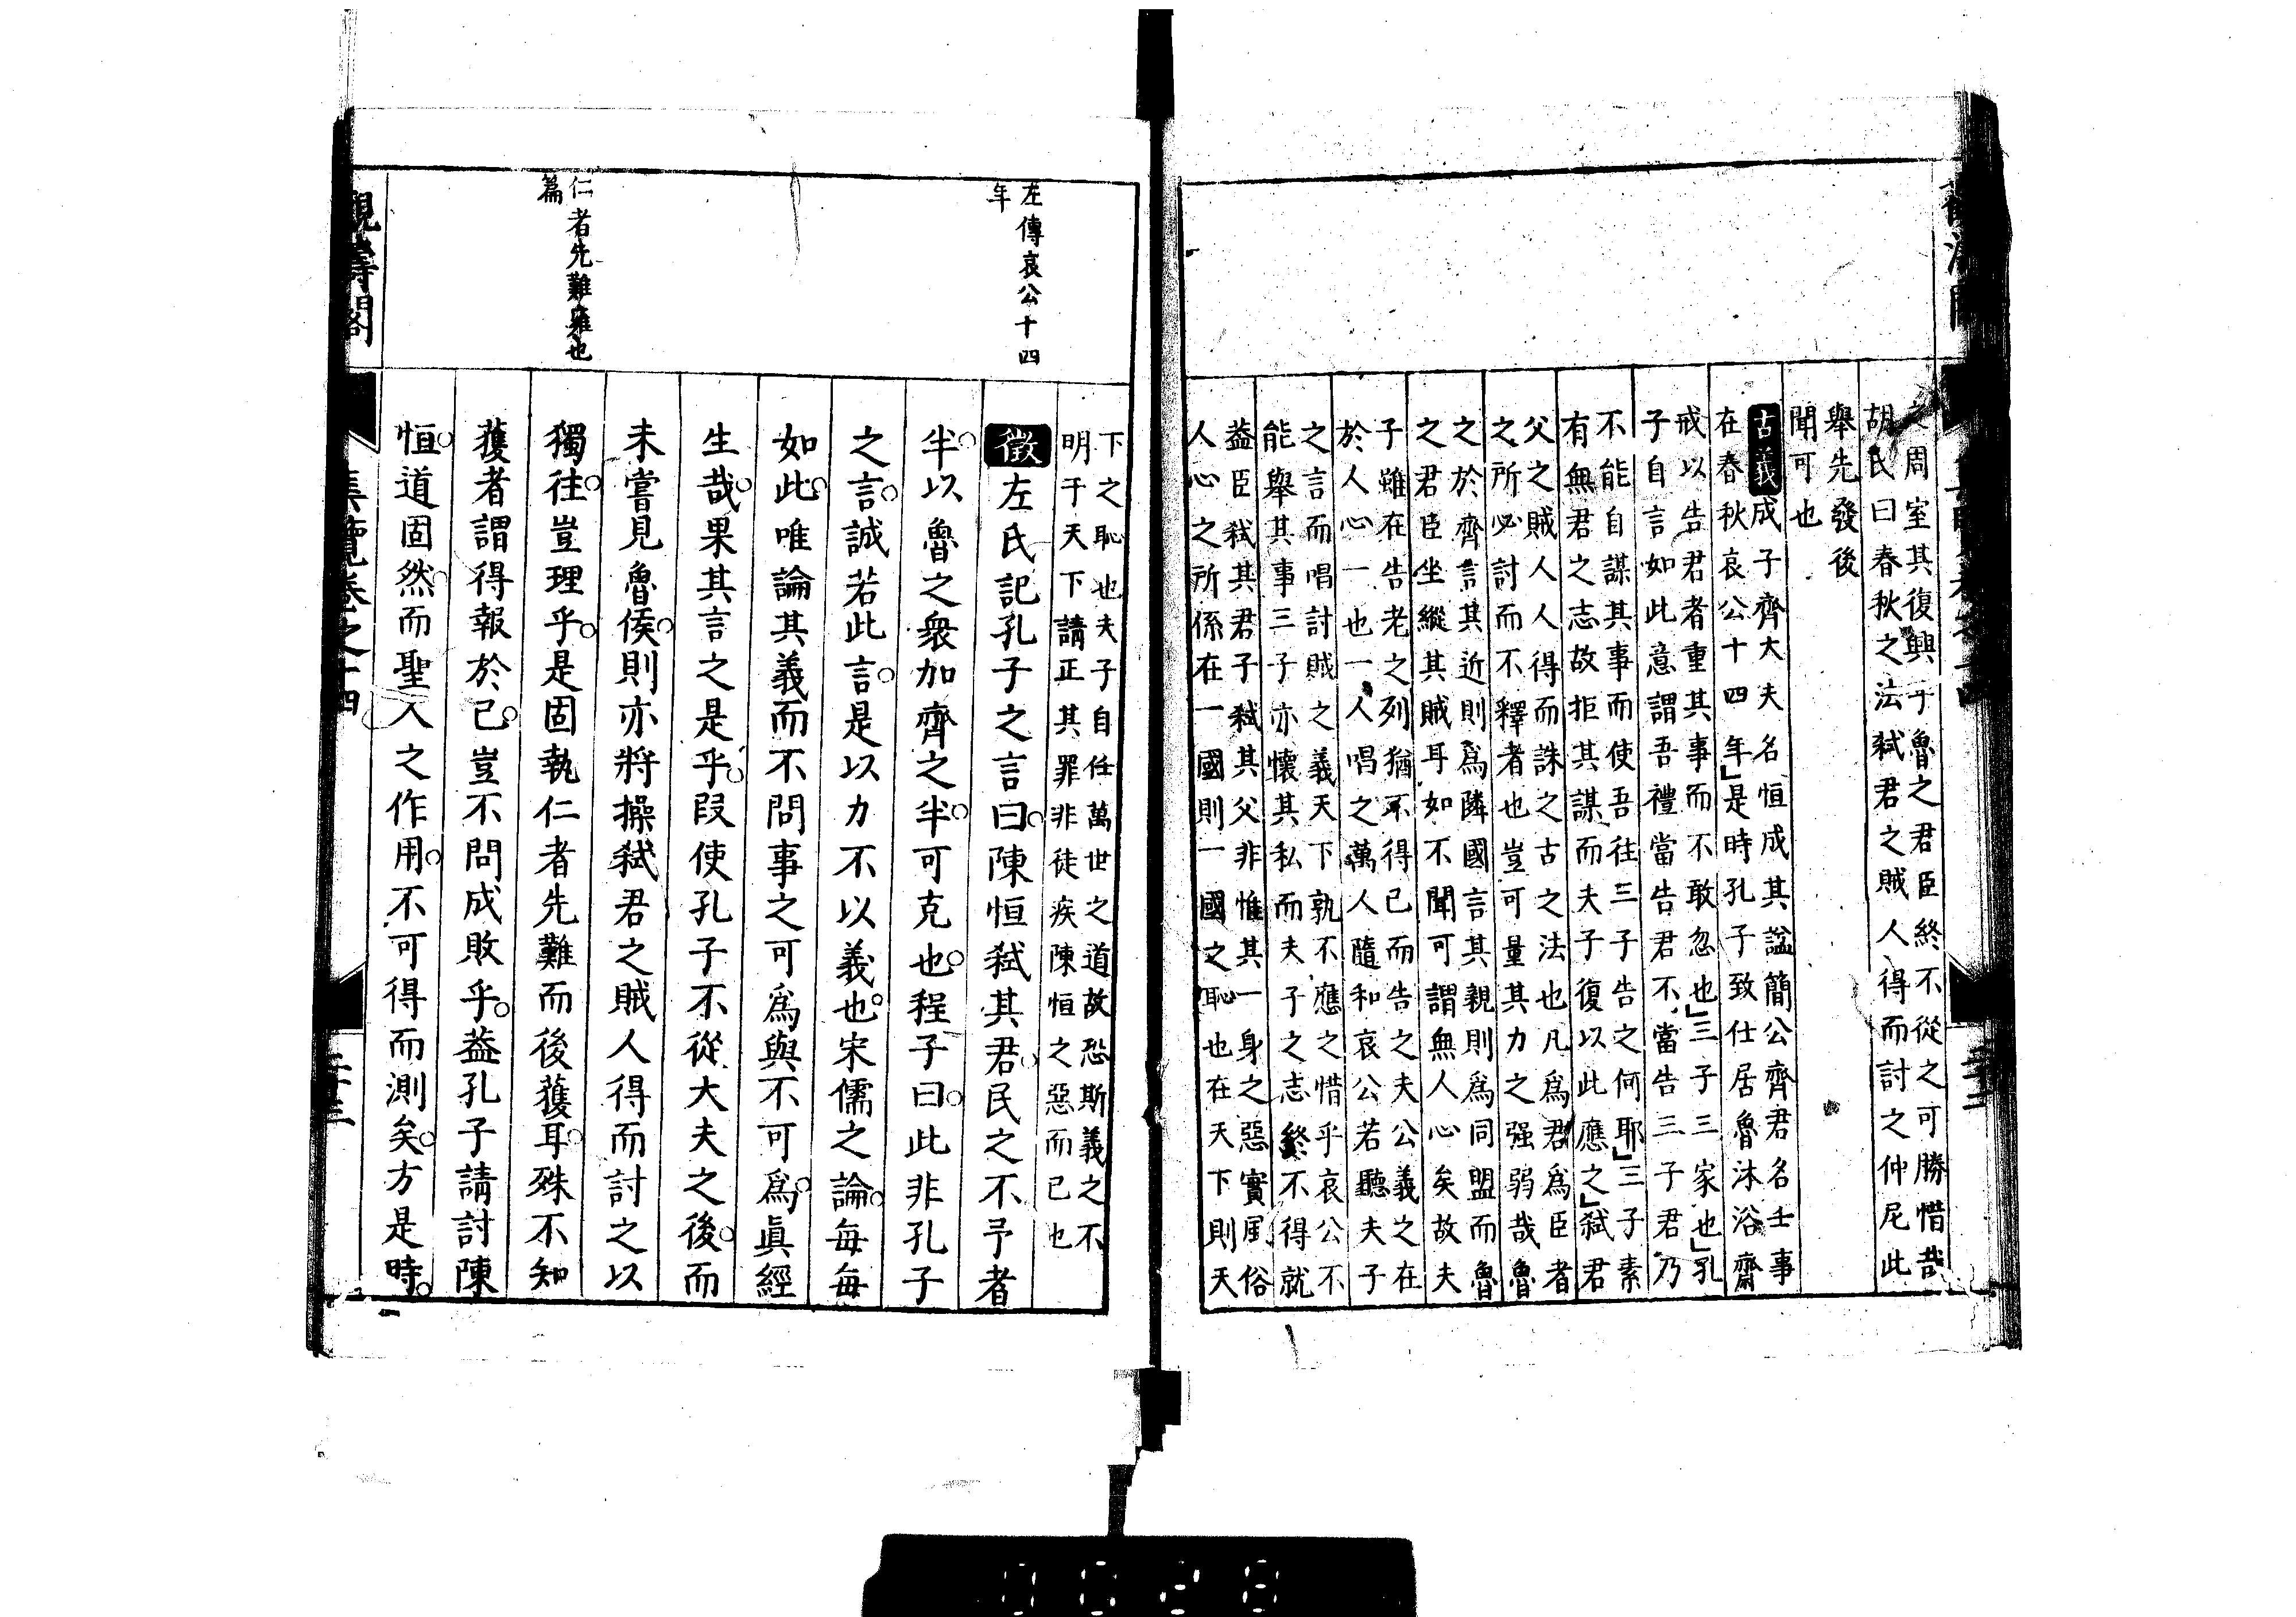 之周室其復興乎魯之君臣終不從之可勝惜哉
胡氏曰春秋之法弑君之賊人得而討之仲尼此
舉先發後
聞可也
古義成子齊大夫名恒成其諡簡公齊君名壬事
在春秋哀公十四年是時孔子致仕居魯沐浴齋
戒以告君者重其事而不敢忽也三子三家也孔
子自言如此意謂吾禮當告君不當告三子君乃
不能自謀其事而使吾往三子告之何耶三子素
有無君之志故拒其謀而夫子復以此應之弑君
父之賊人人得而誅之古之法也凡爲君爲臣者
之所必討而不釋者也豈可量其力之强弱哉魯
之於齊言其近則爲隣國言其親則爲同盟而魯
之君臣坐縱其賊耳如不聞可謂無人心矣故夫
子雖在告老之列猶不得已而告之夫公義之在
於人心一也一人唱之萬人隨和哀公若聽夫子
之言而唱討賊之義天下孰不應之惜乎哀公不
能舉其事三子亦懷其私而夫子之志終不得就
葢臣弑其君子弑其父非惟其一身之惡實風俗
人心之所係在一國則一國之恥也在天下則天
左傳哀公十四
年
下之恥也夫子自任萬世之道故恐斯義之不
明于天下請正其罪非徒疾陳恒之惡而已也
徵左氏記孔子之言曰陳恒弑其君民之不予者
半以魯之衆加齊之半可克也程子曰此非孔子
之言誠若此言是以力不以義也宋儒之論每每
如此唯論其義而不問事之可爲與不可爲眞經
生哉果其言之是乎叚使孔子不從大夫之後而
未嘗見魯侯則亦將操弑君之賊人得而討之以
仁者先難雍也
篇
獨往豈理乎是固執仁者先難而後獲耳殊不知
獲者謂得報於己豈不問成敗乎葢孔子請討陳
恒道固然而聖人之作用不可得而測矣方是時
觀濤閣
集覽卷之十四